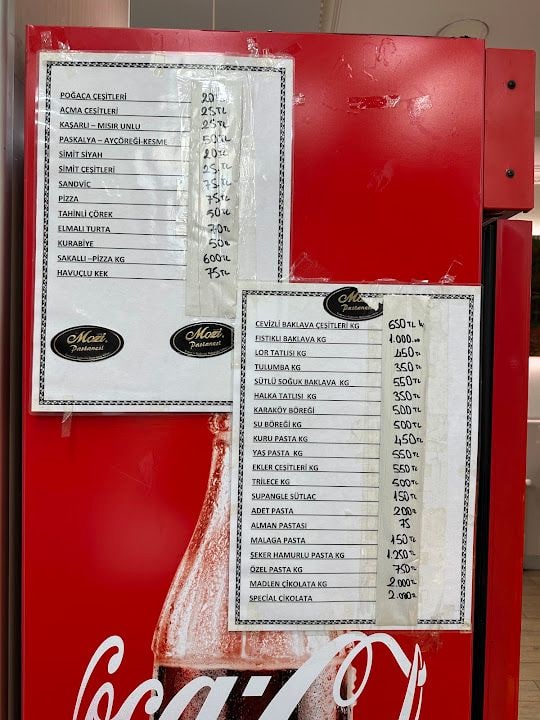 POĞAÇA ÇEŞİTLERİ 20TL
AÇMA ÇEŞİTLERİ 25TL
KAŞARLI – MISIR UNLU 25TL
PASKALYA – AYÇÖREĞİ-KESME 50TL
SİMİT SİYAH 20TL
SİMİT ÇEŞİTLERİ 25TL
SANDVİÇ 75TL
PİZZA 75TL
TAHİNLİ ÇÖREK 50TL
ELMALI TURTA 70TL
KURABİYE 50TL
SAKALLI –PİZZA KG 600TL
HAVUÇLU KEK 75TL
Mozi.
Pastanesi
Mozi.
Pastanesi
CEVİZLİ BAKLAVA ÇEŞİTLERİ KG 650TL
FISTIKLI BAKLAVA KG 1.000.00
LOR TATLISI KG 450TL
TULUMBA KG 350TL
SÜTLÜ SOĞUK BAKLAVA KG 550TL
HALKA TATLISI KG 350TL
KARAKÖY BÖREĞİ 500TL
SU BÖREĞİ KG 500TL
KURU PASTA KG 450TL
YAŞ PASTA KG 550TL
EKLER ÇEŞİTLERİ KG 550TL
TRİLEÇE KG 500TL
SUPANGLE SÜTLAÇ 150TL
ADET PASTA 200TL
ALMAN PASTASI 75
MALAGA PASTA 150TL
ŞEKER HAMURLU PASTA KG 1.250TL
ÖZEL PASTA KG 750TL
MADLEN ÇİKOLATA KG 2.000TL
SPECİAL ÇİKOLATA 2.000TL
Coca-C